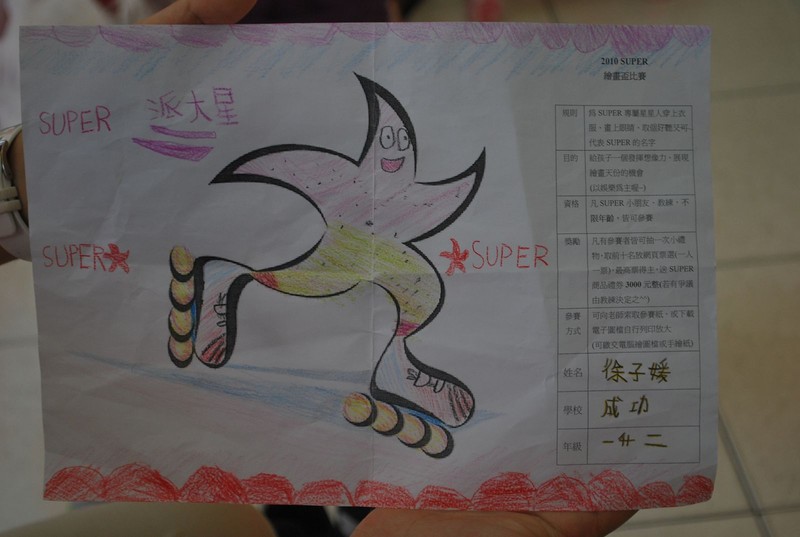 SUPER 派大星
SUPER
SUPER
2010 SUPER
繪畫盃比賽
規則
為 SUPER 專屬星星人穿上衣
服、畫上眼睛、取個好聽又可
代表 SUPER 的名字
目的
給孩子一個發揮想像力、展現
繪畫天份的機會
(以娛樂為主喔~)
資格
凡 SUPER 小朋友、教練、不
限年齡、皆可參賽
獎勵
凡有參賽者皆可抽一次小禮
物、取前十名放網頁票選(一人
一票)、最高票得主、送 SUPER
商品禮券 3000 元整(若有爭議
由教練決定之^^)
參賽
方式
可向老師索取參賽紙、或下載
電子圖檔自行列印放大
(可繳交電腦繪圖檔或手繪紙)
姓名 徐子媛
學校 成功
年級 一升二